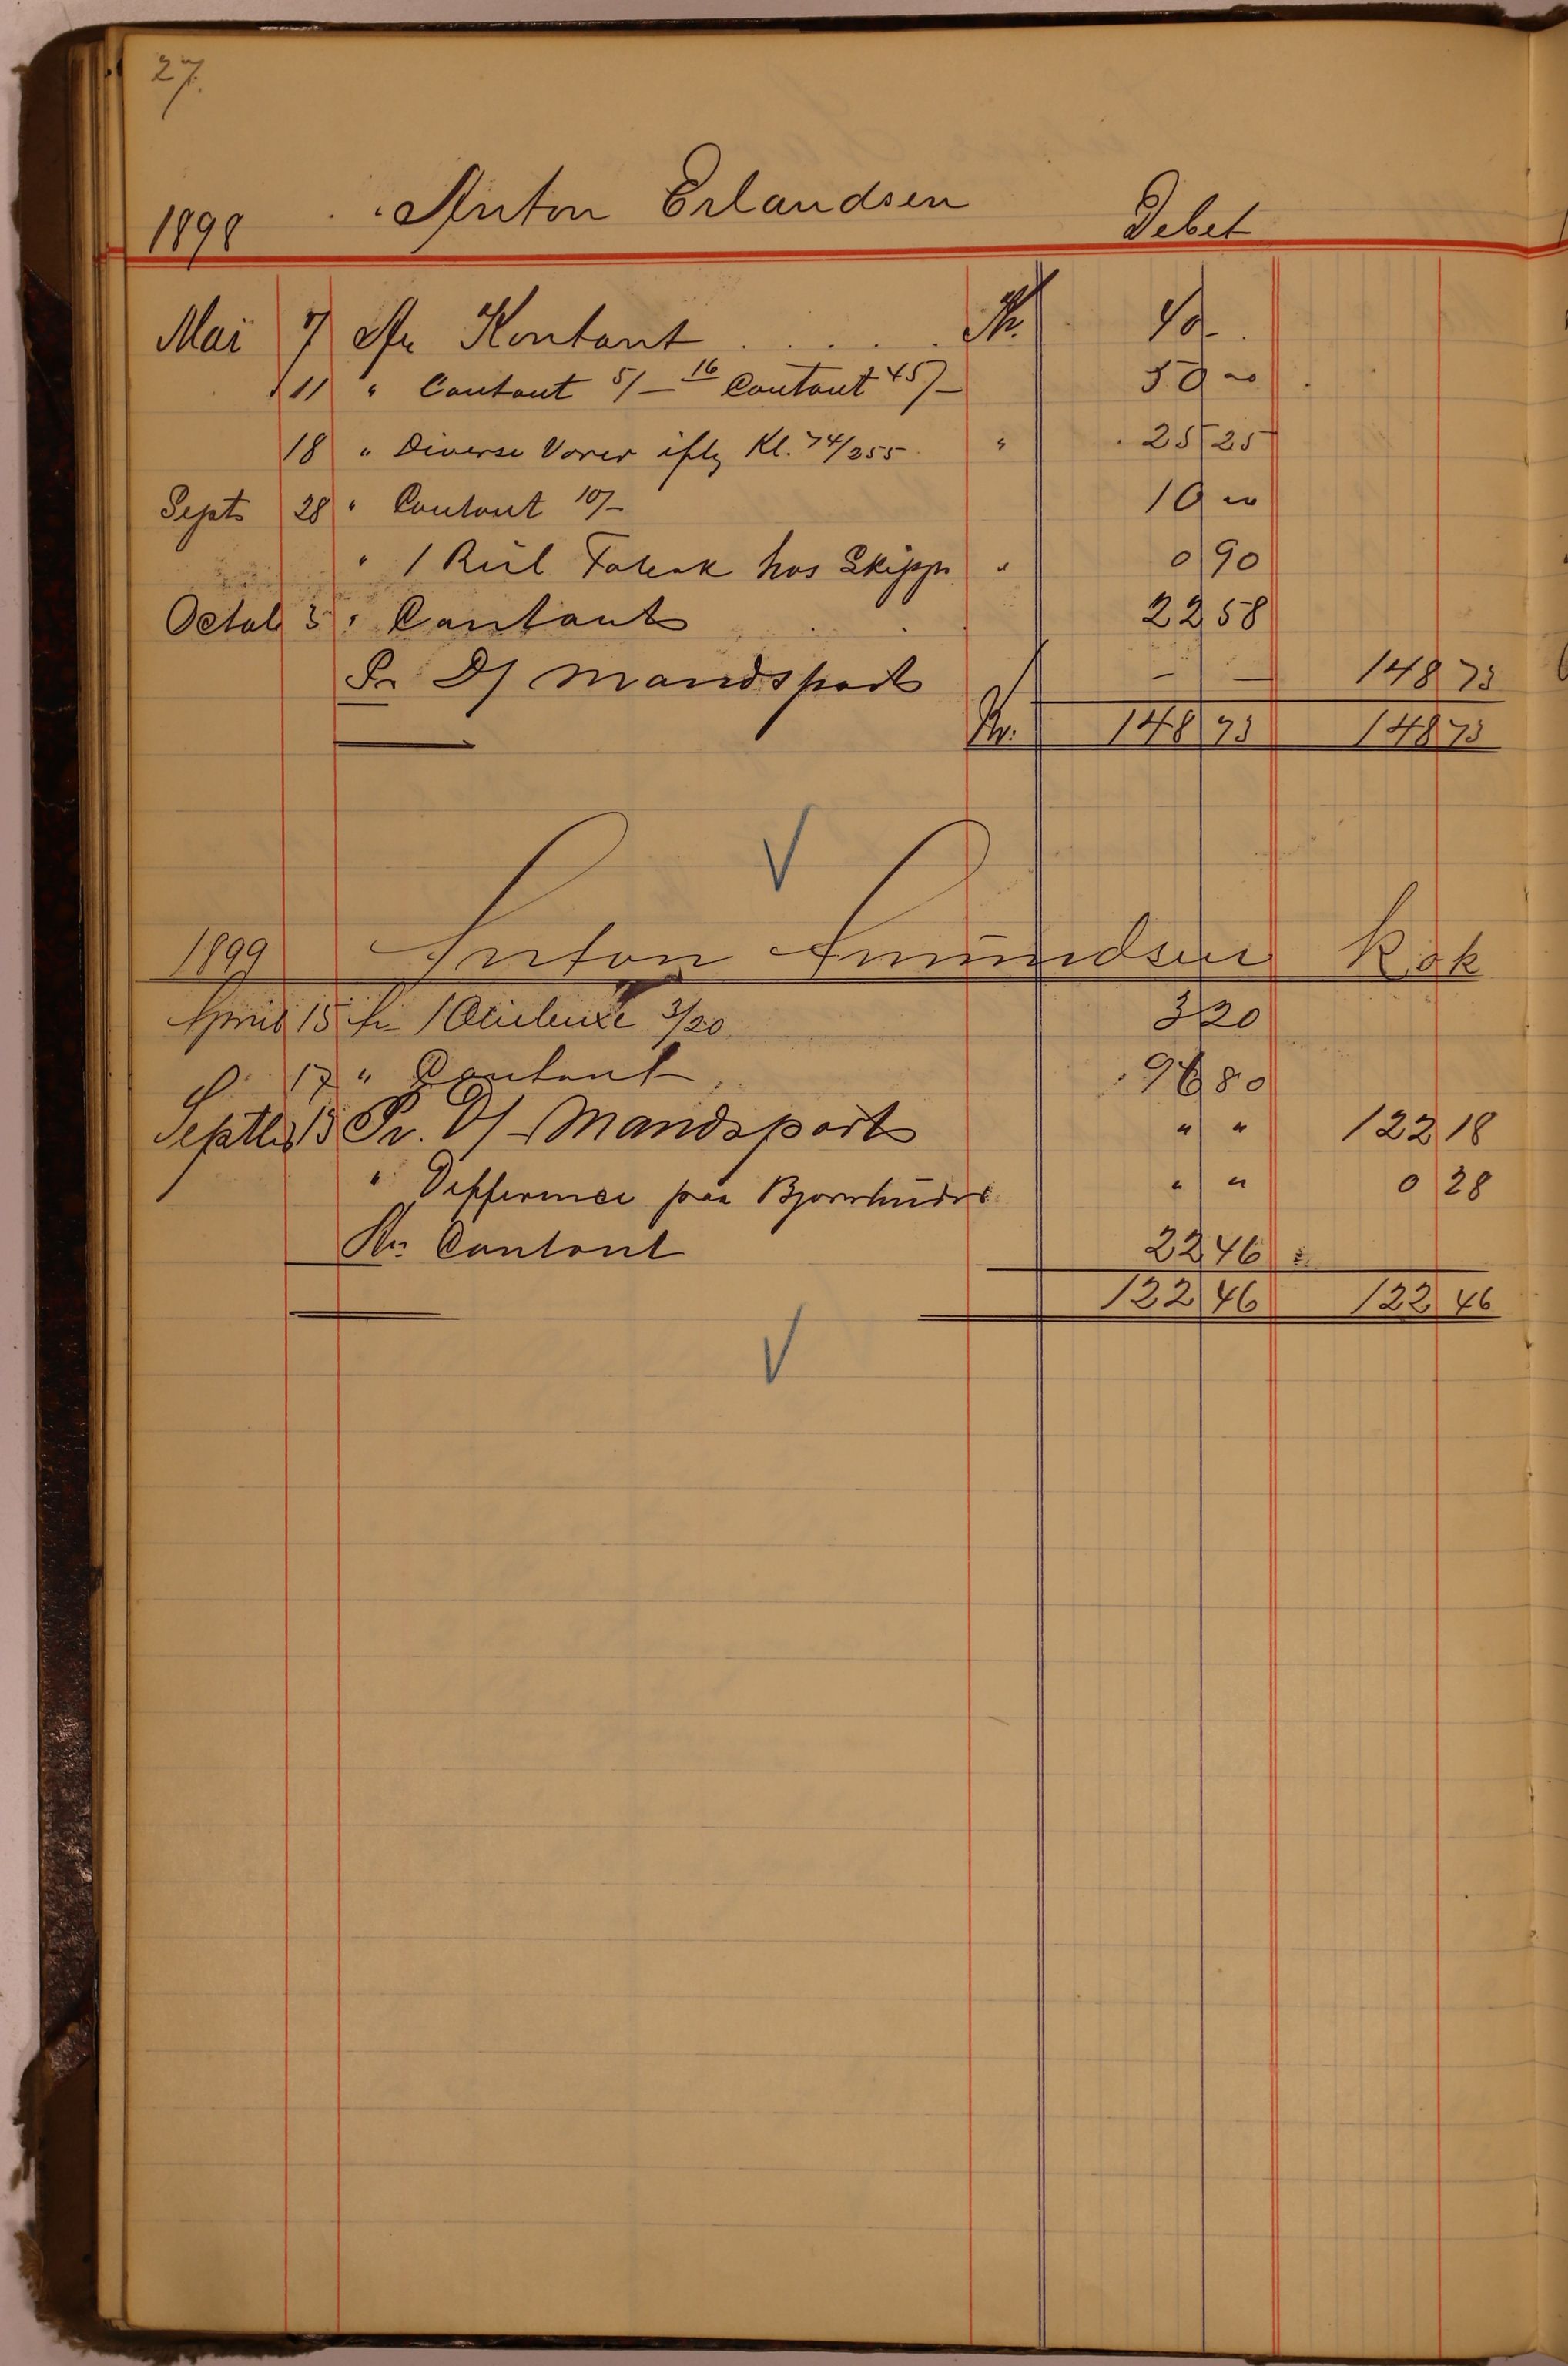 27.
1898 Anton Erlandsen Debet
Mai 7 An Kontant . . . . . Kr. 40 -
11 " Contant 5/- 16 Contant 45/- 50 "
18 " Diverse Varer iflg Kl. 74/255 " 25 25
Septb 28 " Contant 10/- 10 "
" 1 Rul Tobak hos Skipp " 0 90
Octob 3 " Contant 22 58
Pr D/ Mandspart - - 148 73
Kr. 148 73 148 73
1899 Anton Amundsen Kok
April 15 An 1 3/20 3 20
17 " Contant 96 80
Septbr 15 Pr. D/ Mandspart " " 122 18
" Differance paa Bjørnhuder " " 0 28
An Contant 22 46
122 46 122 46